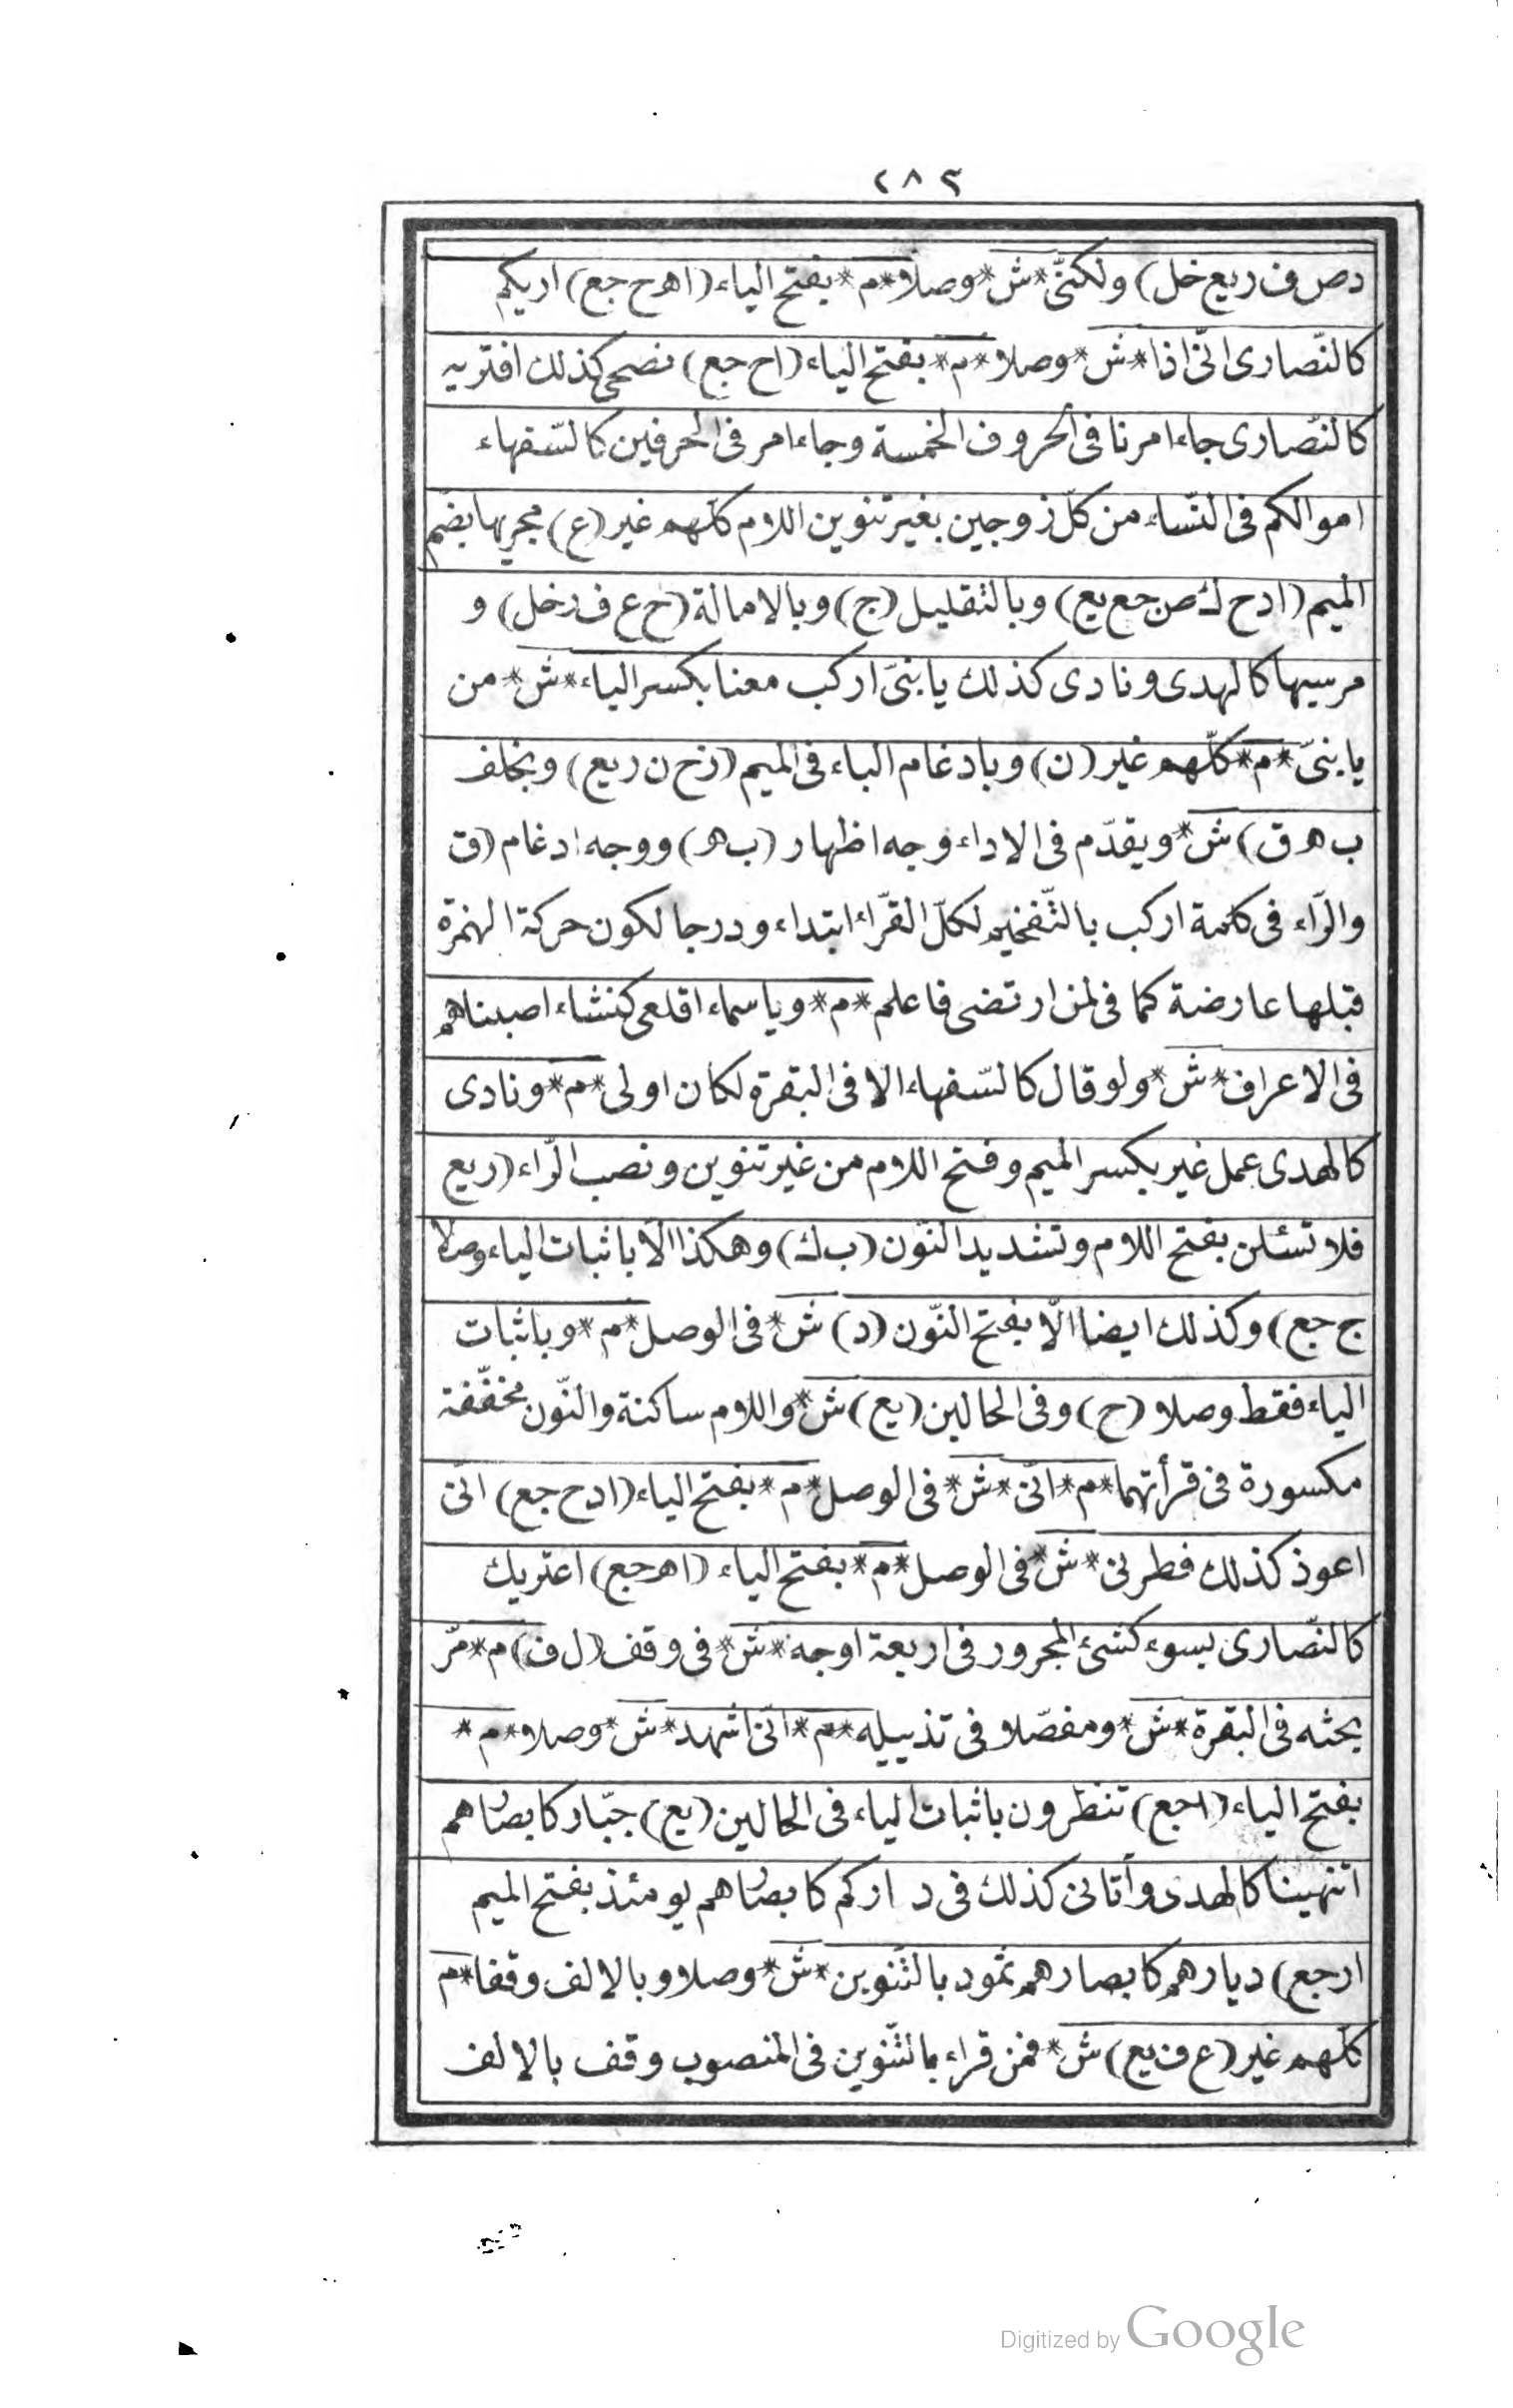 ٢٨٢
دص ف ريع خل) ولكنّى*ش*وصلا*م*بفتح الياء (اهرح جع) اريكم
كالنّصارى انّى اذا*ش*وصلا*م*بفتح الياء (اح جع) نصحى كذلك افتريه
كالنّصارى جاء امرنا فى الحروف الخمسة وجاء امر فى الحرفين كالسّفهاء
اموالكم فى النّساء من كلّ زوجين بغير تنوين اللام كلّهم غير (ع) مجريها بضم
الميم (ادح ك ص جع يع) وبالتقليل (ج) وبالامالة (ح ع ف ر خل) و
مرسيها كالهدى ونادى كذلك يا بنىّ اركب معنا بكسر الياء*ش*من
يا بنىّ*م*كلّهم غير (ن) وبادغام الباء فى الميم (زح ن ريع) وبخلف
ب ه ق) ش*ويقدّم فى الاداء وجه اظهار (ب ه) ووجه ادغام (ق
والرّاء فى كلمة اركب بالتّفخيم لكلّ القرّاء ابتداء ودرجا لكون حركة الهمزة
قبلها عارضة كما فى لمن ارتضى فاعلم*م*ويا سماء اقلعى كنشاء اصبناهم
فى الاعراف*ش*ولو قال كالسّفهاء الا فى البقرة لكان اولى*م*ونادى
كالهدى عمل غير بكسر الميم وفتح اللام من غير تنوين ونصب الرّاء (ريع
فلا تسئلن بفتح اللام وتشديد النّون (ب ك) وهكذا الّا باثبات الياء وصلا
ج جع) وكذلك ايضا الّا بفتح النّون (د) ش*فى الوصل*م*وباثبات
الياء فقط وصلا (ح) وفى الحالين (يع) ش*واللام ساكنة والنّون مخفّفة
مكسورة فى قرأتهما*م*انّى*ش*فى الوصل*م*بفتح الياء (ادح جع) انّى
اعوذ كذلك فطرنى*ش*فى الوصل*م*بفتح الياء (اهرجع) اعتريك
كالنّصارى بسوء كشىء المجرور فى اربعة اوجه*ش*فى وقف (ل ف) م*مرّ
بحثه فى البقرة*ش*ومفصّلا فى تذييله*م*انّى اشهد*ش*وصلا*م*
بفتح الياء (اجع) تنظرون باثبات الياء فى الحالين (يع) جبّار كابصارهم
اتنهينا كالهدى وآتانى كذلك فى داركم كابصارهم يومئذ بفتح الميم
ارجع) ديارهم كابصارهم ثمود بالتّنوين*ش*وصلا وبالالف وقفا*م
كلّهم غير (ع ف يع) ش*فمن قراء بالتّنوين فى المنصوب وقف بالالف
Digitized by Google